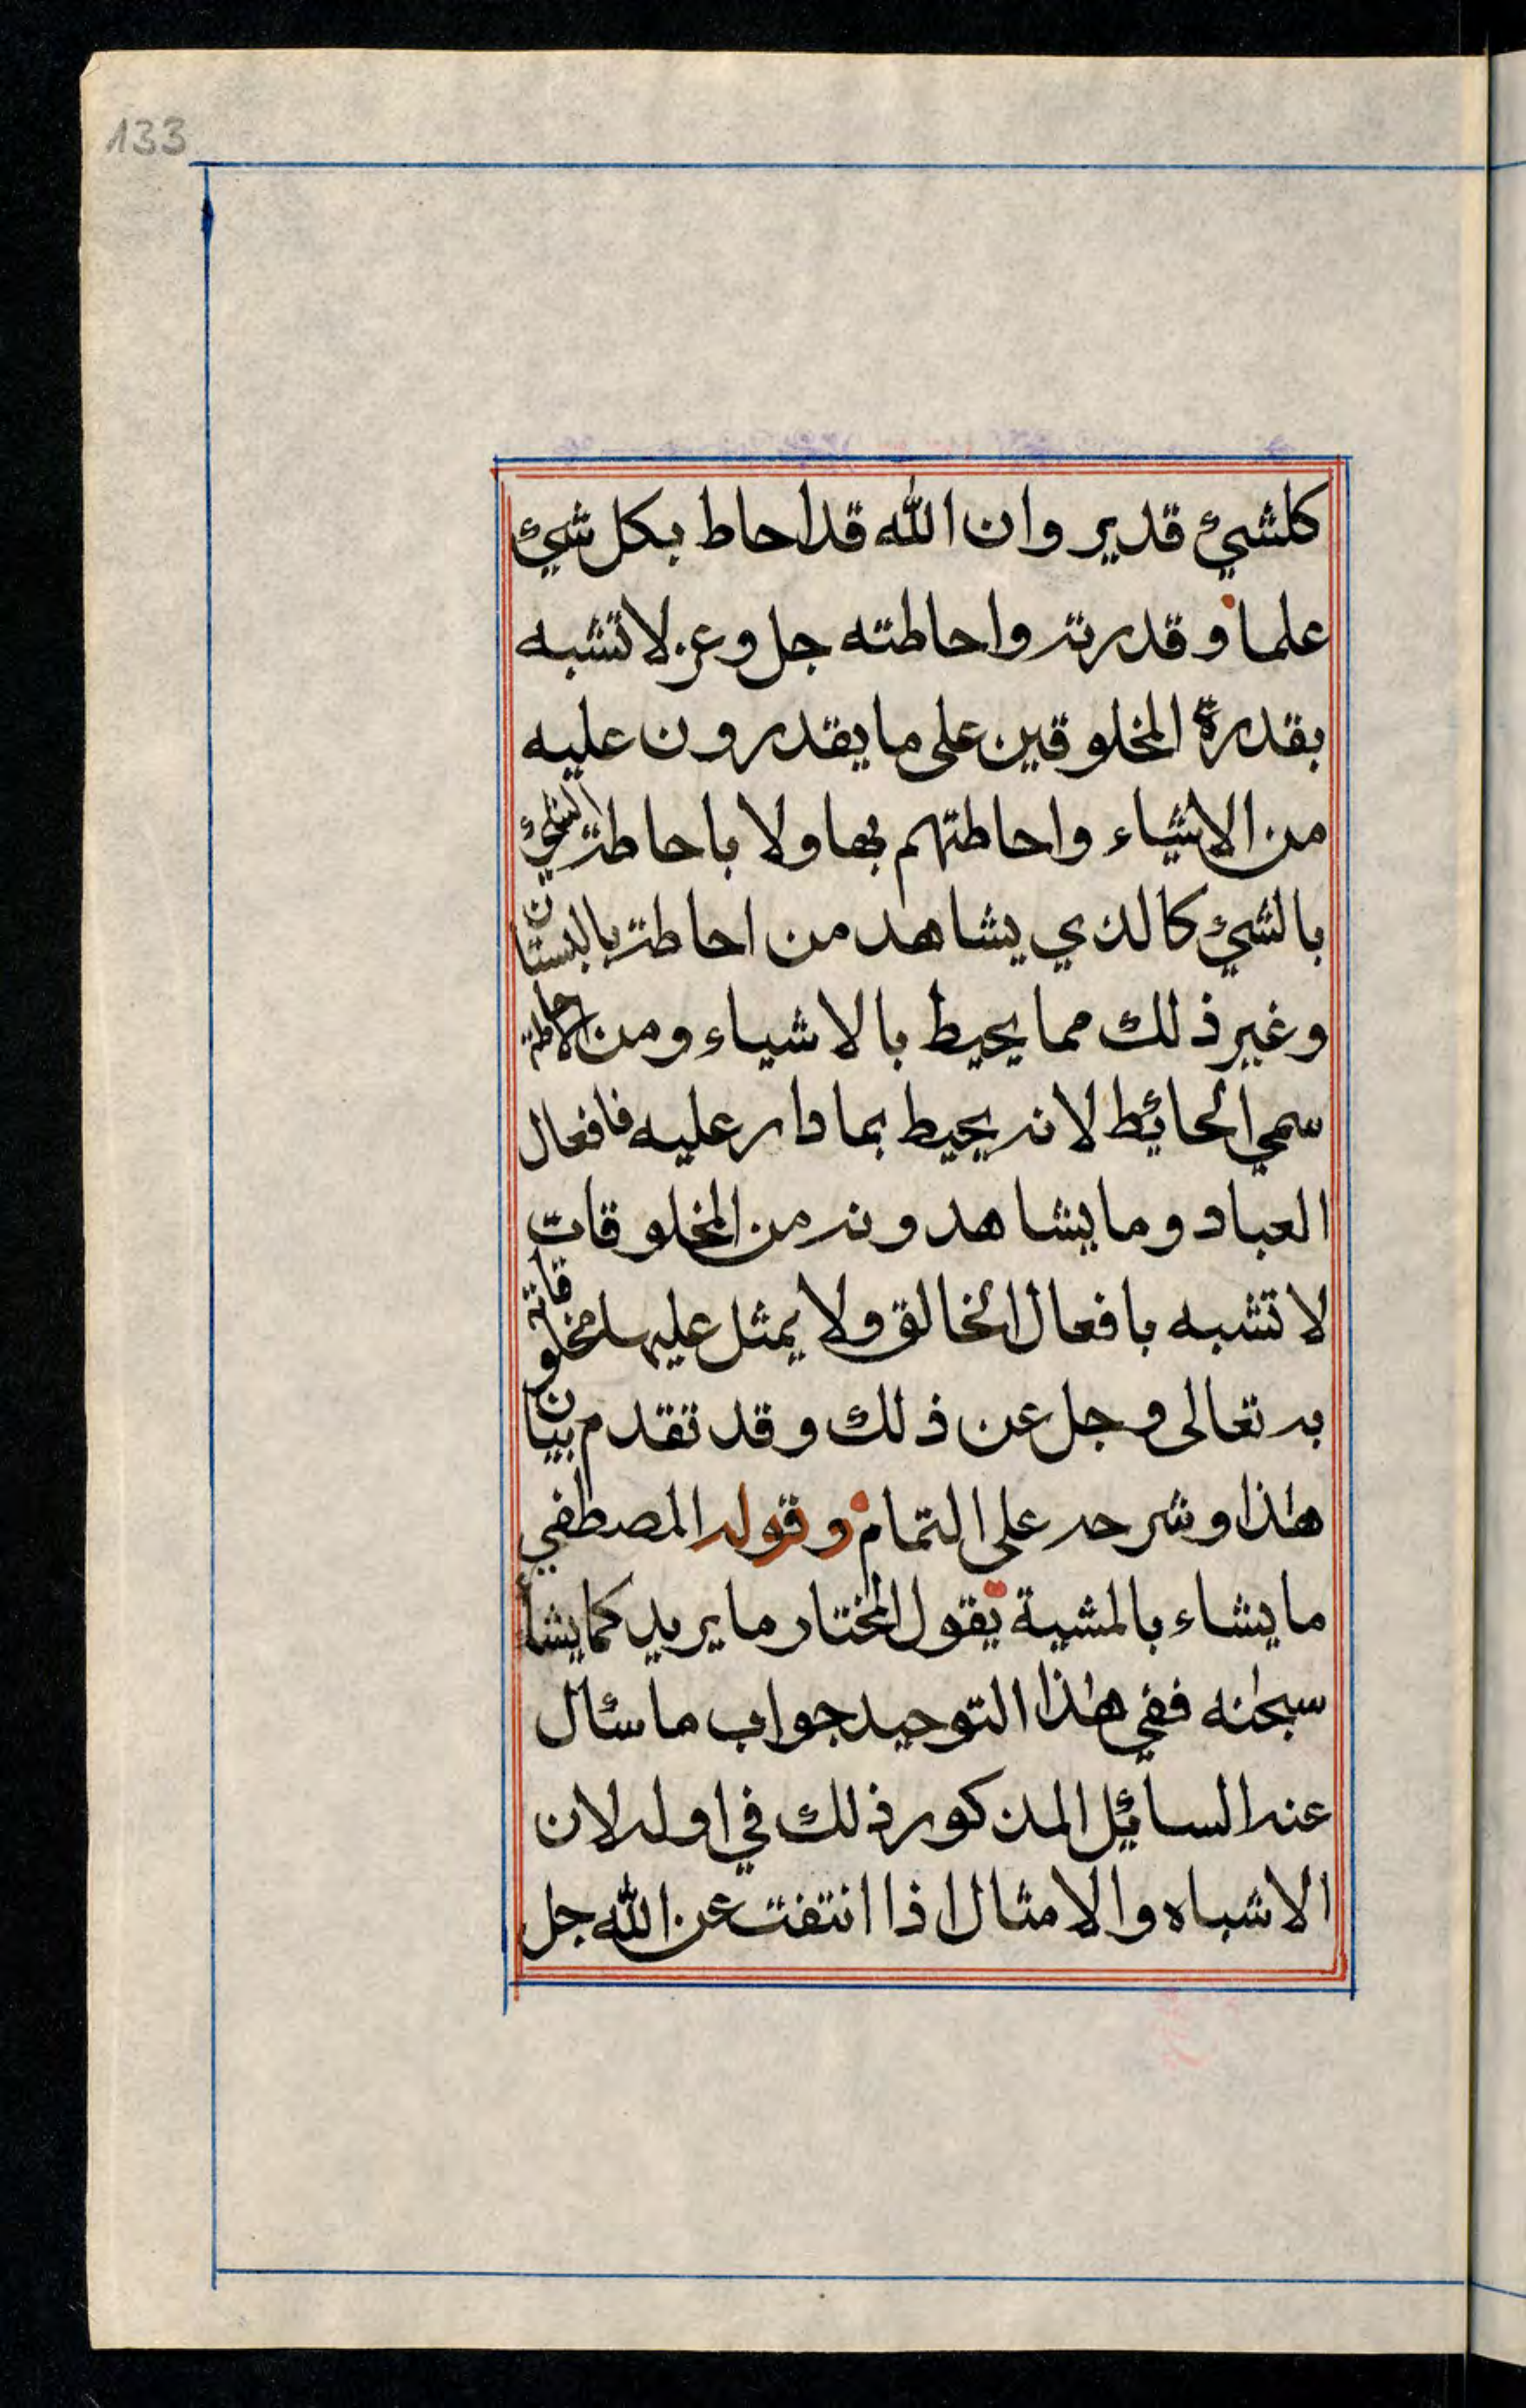 133
كلشيئ قدير وان الله قد احاط بكل شيئ
علما وقدرته واحاطته جل وعز لا تشبه
بقدرة المخلوقين على ما يقدرون عليه
من الاشياء واحاطتهم بها ولا باحاطة الشيئ
بالشيئ كالذي يشاهد من احاطة بالبستان
وغير ذلك مما يحيط بالاشياء ومن الاحاطة
سمي الحائط لانه يحيط بما دار عليه فافعال
العباد وما يشاهدونه من المخلوقات
لا تشبه بافعال الخالق ولا يمثل عليها مخلوقاته
به تعالى وجل عن ذلك وقد تقدم بيان
هذا وشرحه على التمام وقوله المصطفي
ما يشاء بالمشية يقول المختار ما يريد كما يشأ
سبحنه ففي هذا التوحيد جواب ما سئال
عنه السائل المذكور ذلك في اوله لان
الاشباه والامثال اذا انتفت عن الله جل